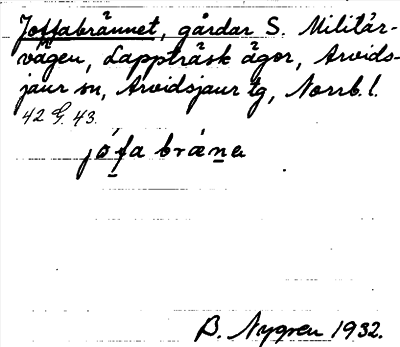 Joffabrännet, gårdar S. Militär-
vägen, Lappträsk ägor, Arvids-
jaur sn, Arvidsjaur tg, Norrb. l.
42 G. 43.
jofa bräna
B. Nygren 1932.